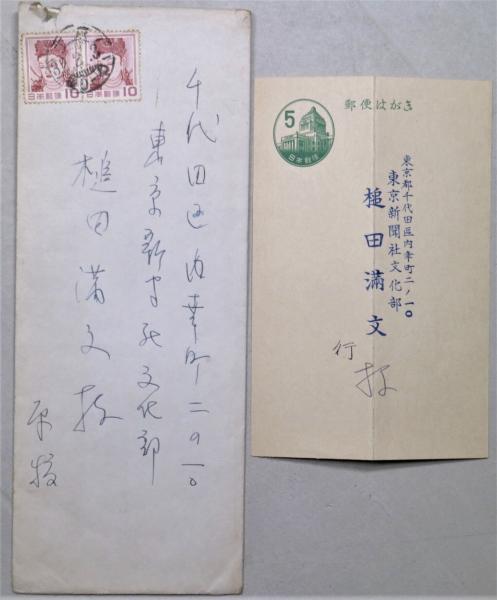 日本郵便 10
日本郵便 10
千代田区内幸町二の一〇
東京新聞社文化部
槌田満文様
原稿
5
日本郵便
郵便はがき
東京都千代田區内幸町二ノ一〇
東京新聞社文化部
槌田満文
行
様